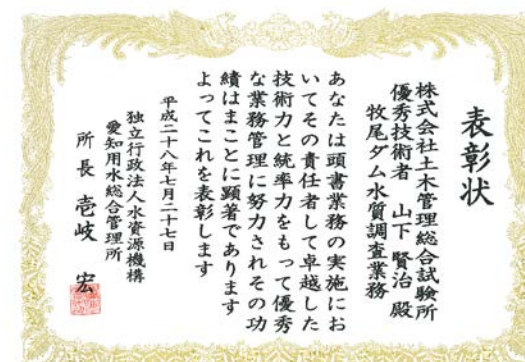 表彰状
株式会社土木管理総合試験所
優秀技術者 山下賢治殿
牧尾ダム水質調査業務
あなたは頭書業務の実施にお
いてその責任者して卓越した
技術力と統率力をもって優秀
な業務管理に努力されその功
績はまことに顕著であります
よってこれを表彰します
平成二十八年七月二十七日
独立行政法人水資源機構
愛知用水総合管理所
所長 壱岐 宏